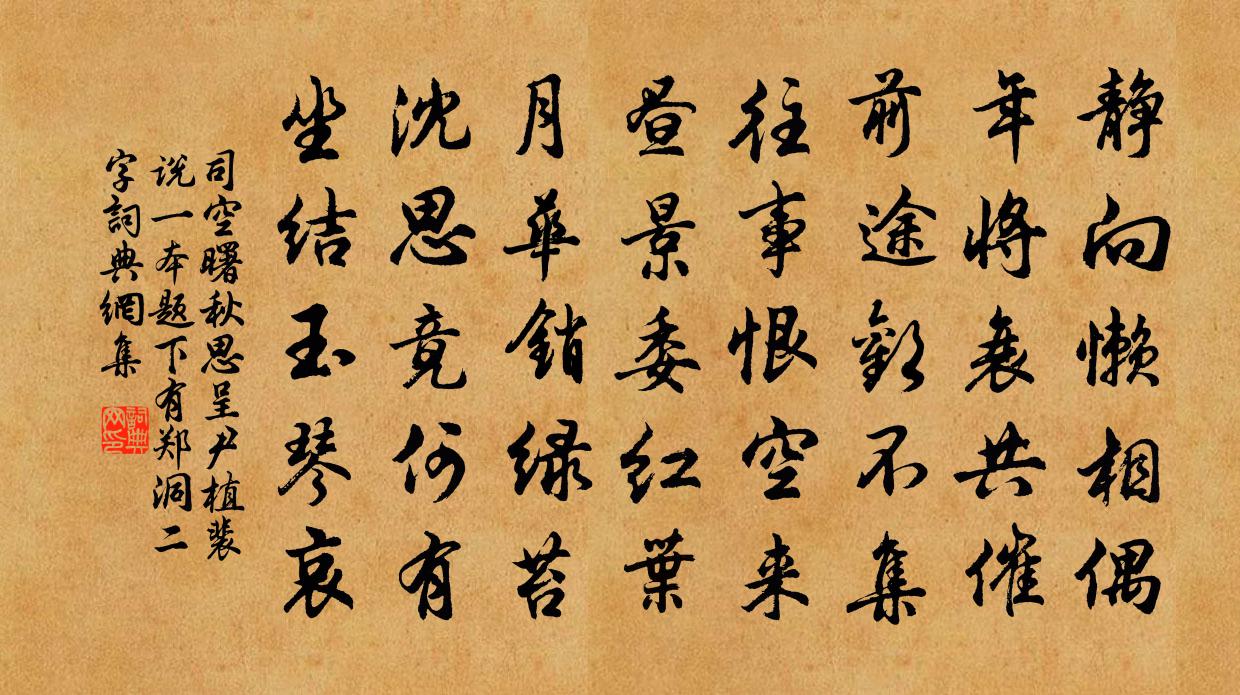 静向懒相偶
年将衰共催
前途歡不集
往事恨空来
昼景委红葉
月華銷绿苔
沈思竟何有
坐结玉琴哀
司空曙秋思呈尹植裴
说一本题下有郑洞二
字詞典網集
詞典
网印